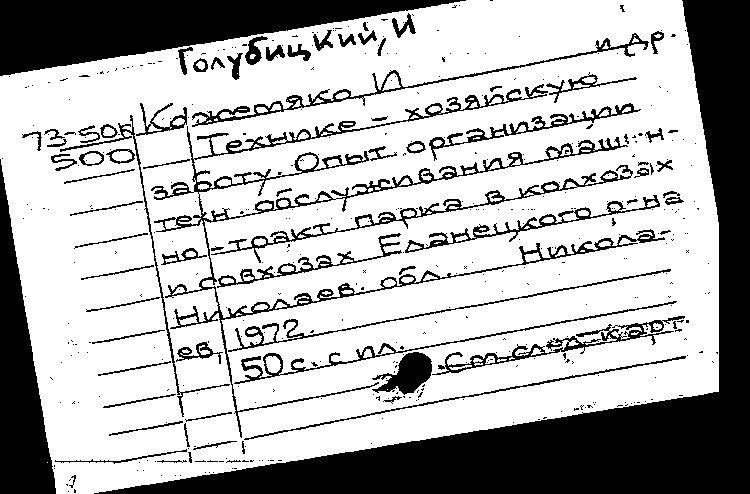 Голубицкий, И
73-50к Кожемяко, И и др.
500 Технике - хозяйскую
заботу. Опыт организации
техн. обслуживания машин-
но-тракт. парка в колхозах
и совхозах Еланецкого р-на
Николаев. обл. Никола-
ев, 1972.
50 с. с ил. См след карт